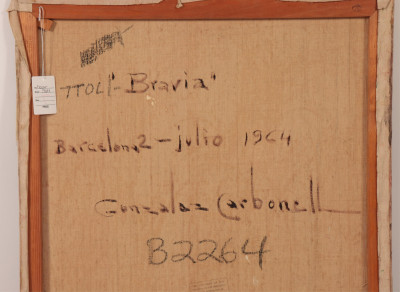 "Bravia"
Barcelona 2 - julio 1964
Gonzalez Carbonell
B2264